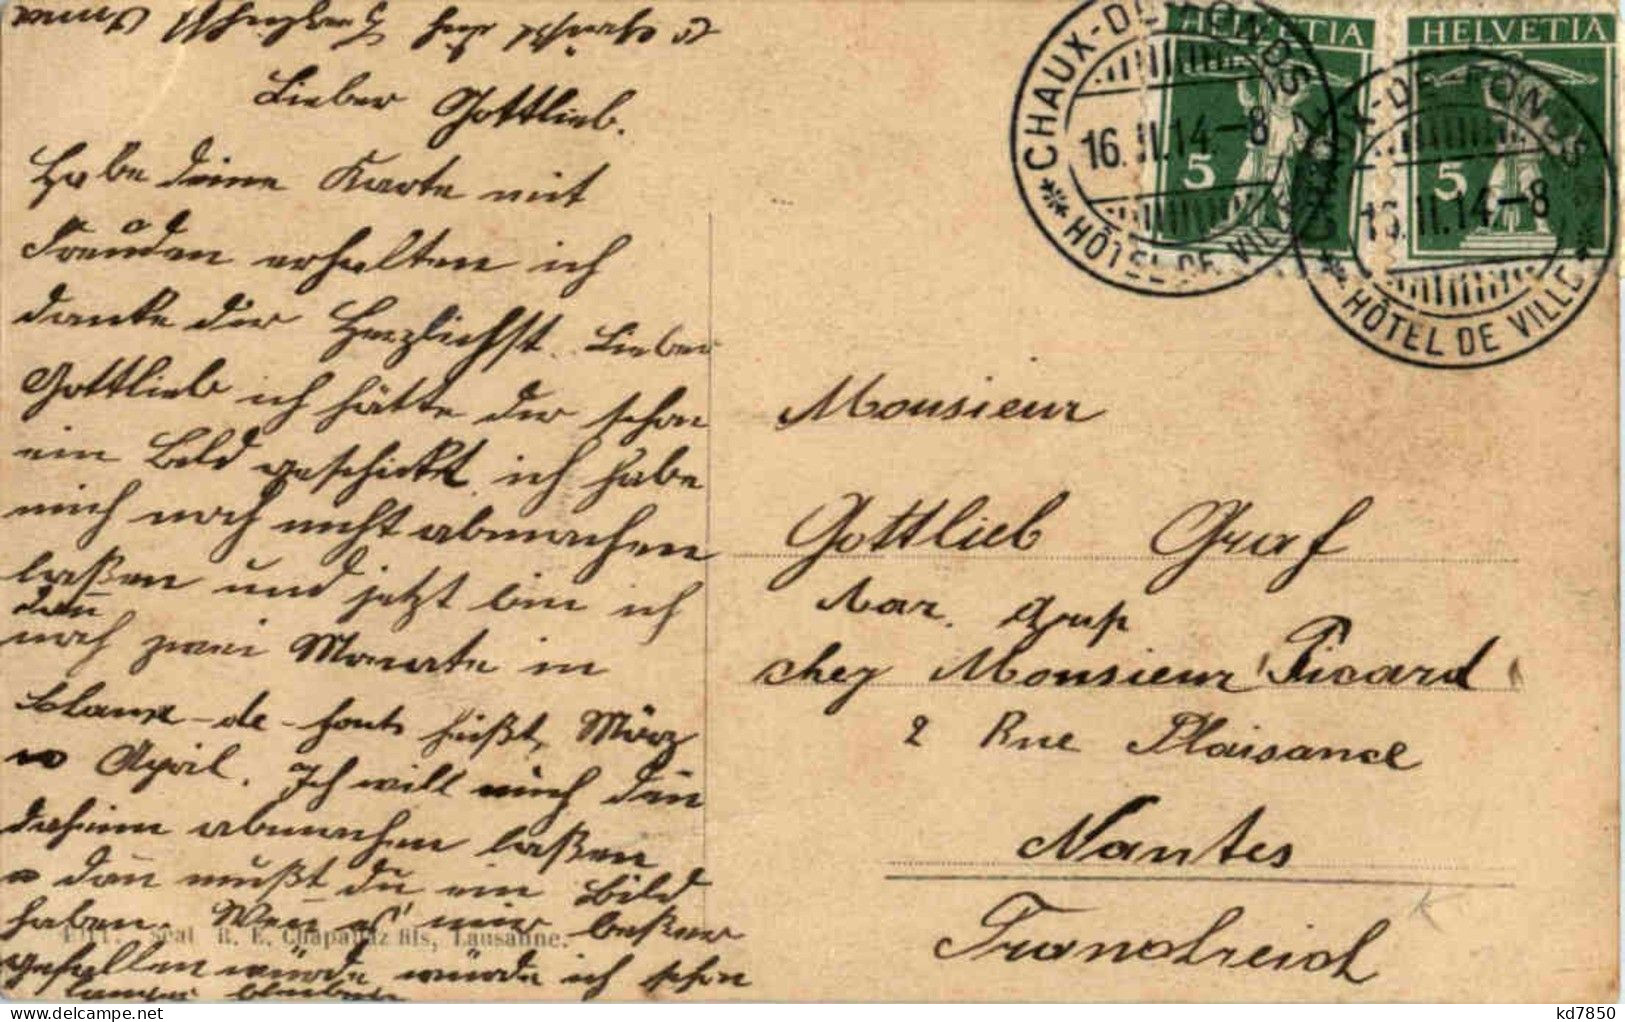 Lieber Gottlieb.
Habe deine Karte mit
Freuden erhalten ich
danke dir Herzlichst. Lieber
Gottlieb ich hätte dir schon
ein Bild geschickt, ich habe
mich noch nicht abmachen
laßen und jetzt bin ich
noch zwei Monate in
Chaux-de-fonds heißt, März
April. Ich will mich dan
daheim abmachen laßen
dan mußt du ein Bild
haben. Wen es mir beßer
gefallen würde würde ich schon
länger bleiben
Edit. Seal R. E. Chapallaz fils, Lausanne.
HELVETIA
5
HELVETIA
5
CHAUX-DE-FONDS
16.II.14-8
HÔTEL DE VILLE
X-DE-FONDS
16.II.14-8
HÔTEL DE VILLE
Monsieur
Gottlieb Graf
chez Monsieur Picard
2 Rue Plaisance
Nantes
Frankreich
kd7850